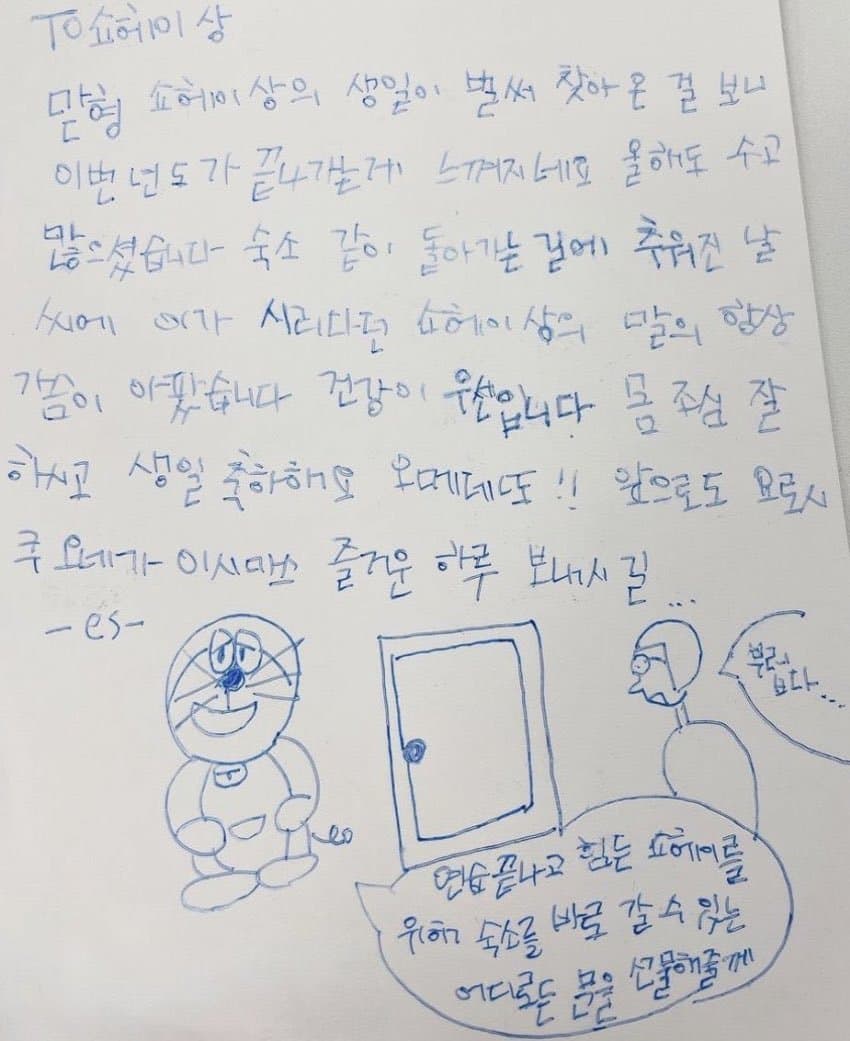 TO쇼헤이상
맏형 쇼헤이상의 생일이 벌써 찾아온 걸 보니
이번년도가 끝나가는게 느껴지네요 올해도 수고
많으셨습니다 숙소 같이 돌아가는 길에 추워진 날
씨에 이가 시리다던 쇼헤이상의 말의 항상
가슴이 아팠습니다 건강이 우선입니다 몸 조심 잘
하시고 생일 축하해요 오메데또!! 앞으로도 요로시
쿠 오네가이시마스 즐거운 하루 보내시길...
-es-
부러
보다...
연습끝나고 힘든 쇼헤이를
위해 숙소를 바로 갈 수 있는
어디로든 문을 선물해줄게